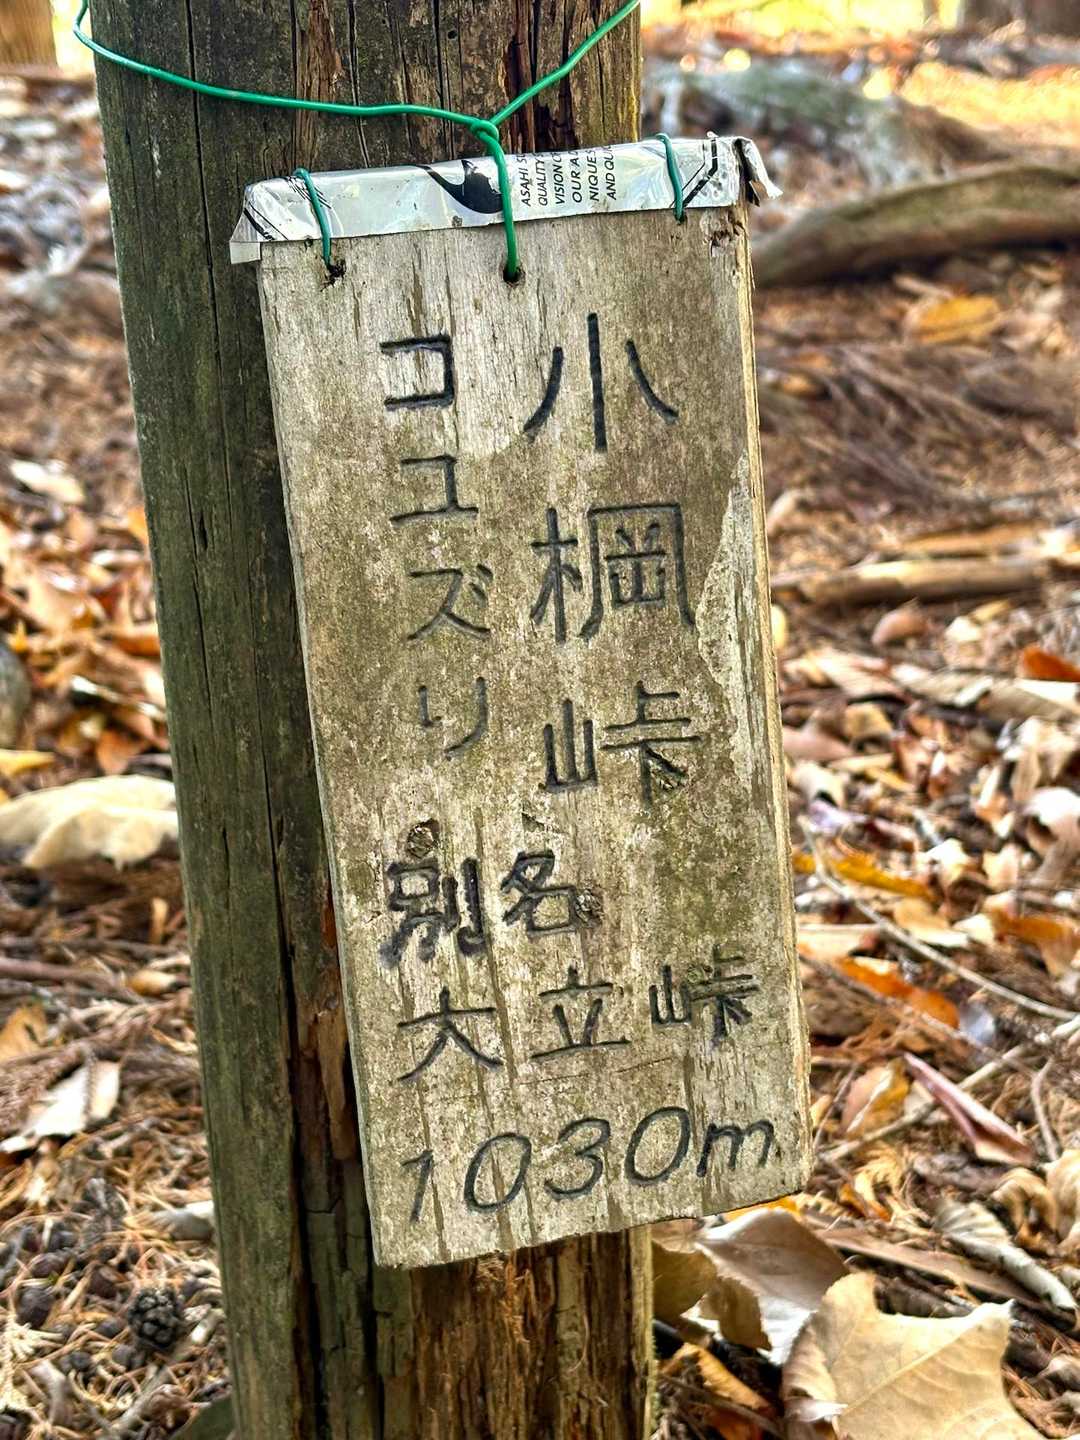 ASAHI
QUALITY
VISION
OUR
NIQUES
AND
小棡峠
コユズリ
別名
大立峠
1030m